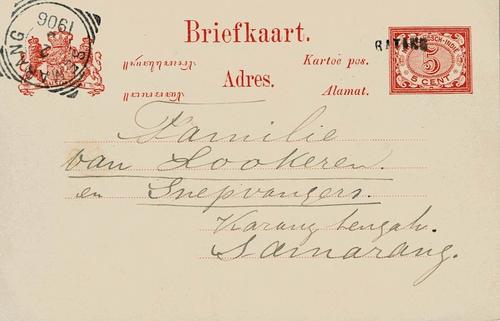 Briefkaart.
Kartoe pos.
Adres.
Alamat.
SEMARANG
1906
5
5 CENT
Familie
van Lookeren.
en Snepvangers.
Karang tengah.
Samarang.